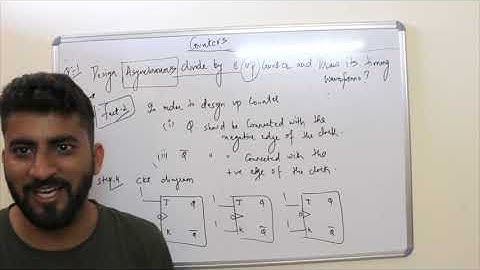 Counters
Q-1 Design Asynchronous divide by 8/up counter and draw its timing
waveforms?
Fact-2 In order to design up counter
(i) Q should be connected with the
negative edge of the clock.
(ii) Q̅ " " connected with the
+ve edge of the clock.
Step-4 ckt diagram
1 1 1
J Q J Q J Q
1 K Q̅ 1 K Q̅ 1 K Q̅